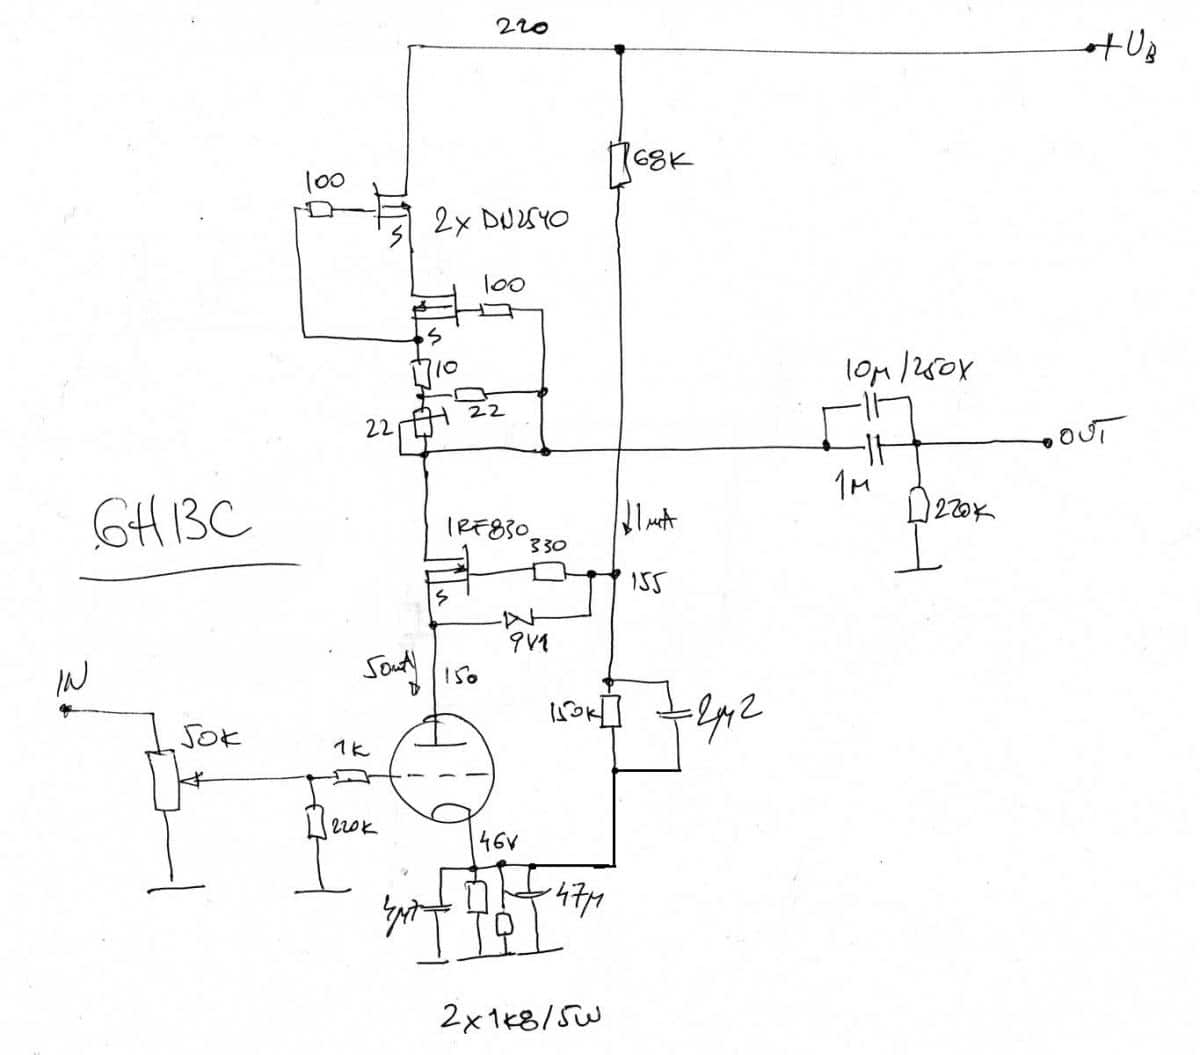 220
+UB
68K
100
S
2x DN2540
100
S
10
22
22
10µ/250V
OUT
1M
220K
6H13C
IRF830
330
↓1mA
S
155
9V1
50mA
150
IN
50K
150K
2µ2
1K
220K
46V
4µ7
47µ
2x1K8/5W